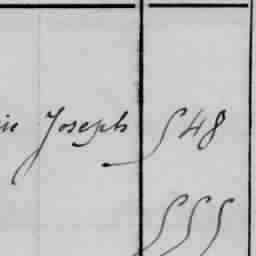 Joseph 548
555